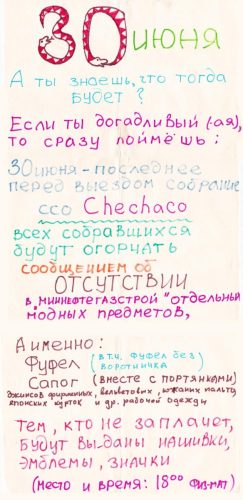 30 июня
А ты знаешь, что тогда
будет ?
Если ты догадливый (-ая),
то сразу поймёшь :
30 июня - последнее
перед выездом собрание
ссо Chechaco
всех собравшихся
будут огорчать
сообщением об
ОТСУТСТВИИ
в "Миннефтегазстрой" отдельных
модных предметов,
А именно:
Фуфел (в т.ч. фуфел без
воротничка)
Сапог (вместе с портянками)
джинсов фирменных, вельветовых, кожаных пальто,
японских курток и др. рабочей одежды
Тем, кто не заплачет,
будут выданы нашивки,
эмблемы, значки
(место и время: 18⁰⁰ физ-мат)